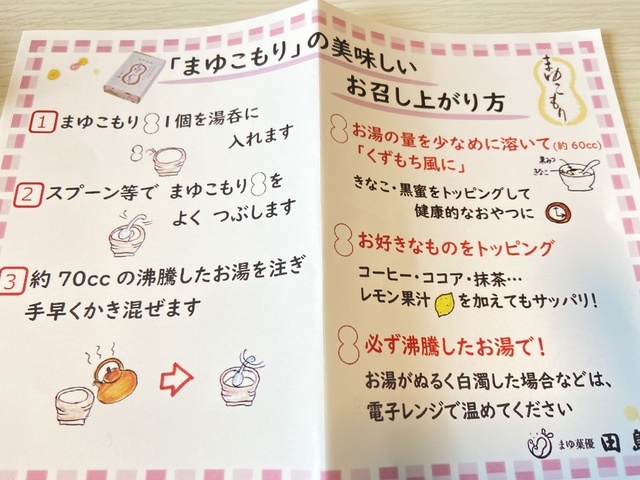 「まゆこもり」の美味しい
お召し上がり方
1 まゆこもり 1個を湯呑に
入れます
2 スプーン等で まゆこもり を
よく つぶします
3 約 70cc の沸騰したお湯を注ぎ
手早くかき混ぜます
まゆこもり
お湯の量を少なめに溶いて(約 60cc)
「くずもち風に」
黒みつ
きなこ
きなこ・黒蜜をトッピングして
健康的なおやつに
お好きなものをトッピング
コーヒー・ココア・抹茶…
レモン果汁 を加えてもサッパリ!
必ず沸騰したお湯で!
お湯がぬるく白濁した場合などは、
電子レンジで温めてください
まゆ菓優 田